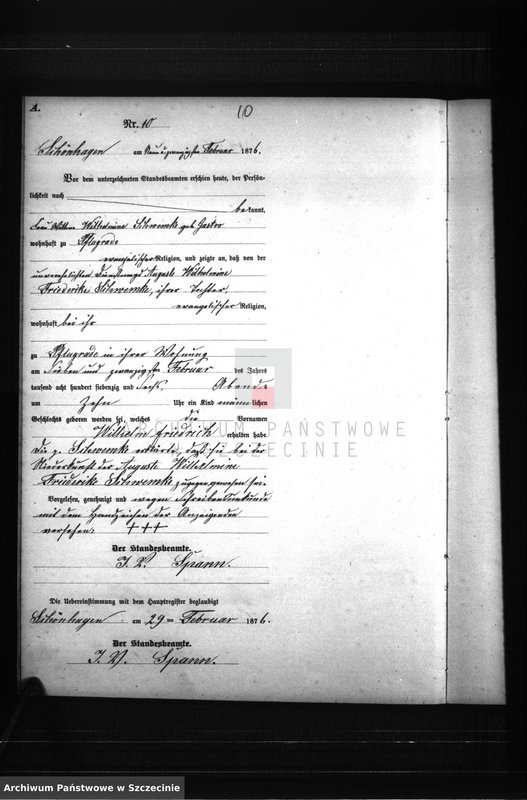 A.
10
Nr. 10
Schönhagen am Neun u. zwanzigsten Februar 1876.
Vor dem unterzeichneten Standesbeamten erschien heute, der Persön-
lichkeit nach
bekannt,
Frau Wittwe Wilhelmine Schwemke geb.
wohnhaft zu Pflugrade
evangelischer Religion, und zeigte an, daß von der
unverehelichten Dienstmagd Auguste Wilhelmine
Friederike Schwemke, ihrer Tochter,
evangelischer Religion,
wohnhaft bei ihr
zu Pflugrade in ihrer Wohnung
am Sieben und zwanzigsten Februar des Jahres
tausend acht hundert siebenzig und sechs Abends
um Zehn Uhr ein Kind männlichen
Geschlechts geboren worden sei, welches die Vornamen
Wilhelm Friedrich erhalten habe.
Die p. Schwemke erklärte, daß sie bei der
Niederkunft der Auguste Wilhelmine
Friderike Schwemke zugegen gewesen sei.
Vorgelesen, genehmigt und wegen Schreibensunkunde
mit dem Handzeichen der Anzeigenden
versehen: +++
Der Standesbeamte.
I. V. Spann.
Die Uebereinstimmung mit dem Hauptregister beglaubigt
Schönhagen am 29ten Februar 1876.
Der Standesbeamte.
I. V. Spann.
ARCHIWUM PAŃSTWOWE
SZCZECINIE
Archiwum Państwowe w Szczecinie